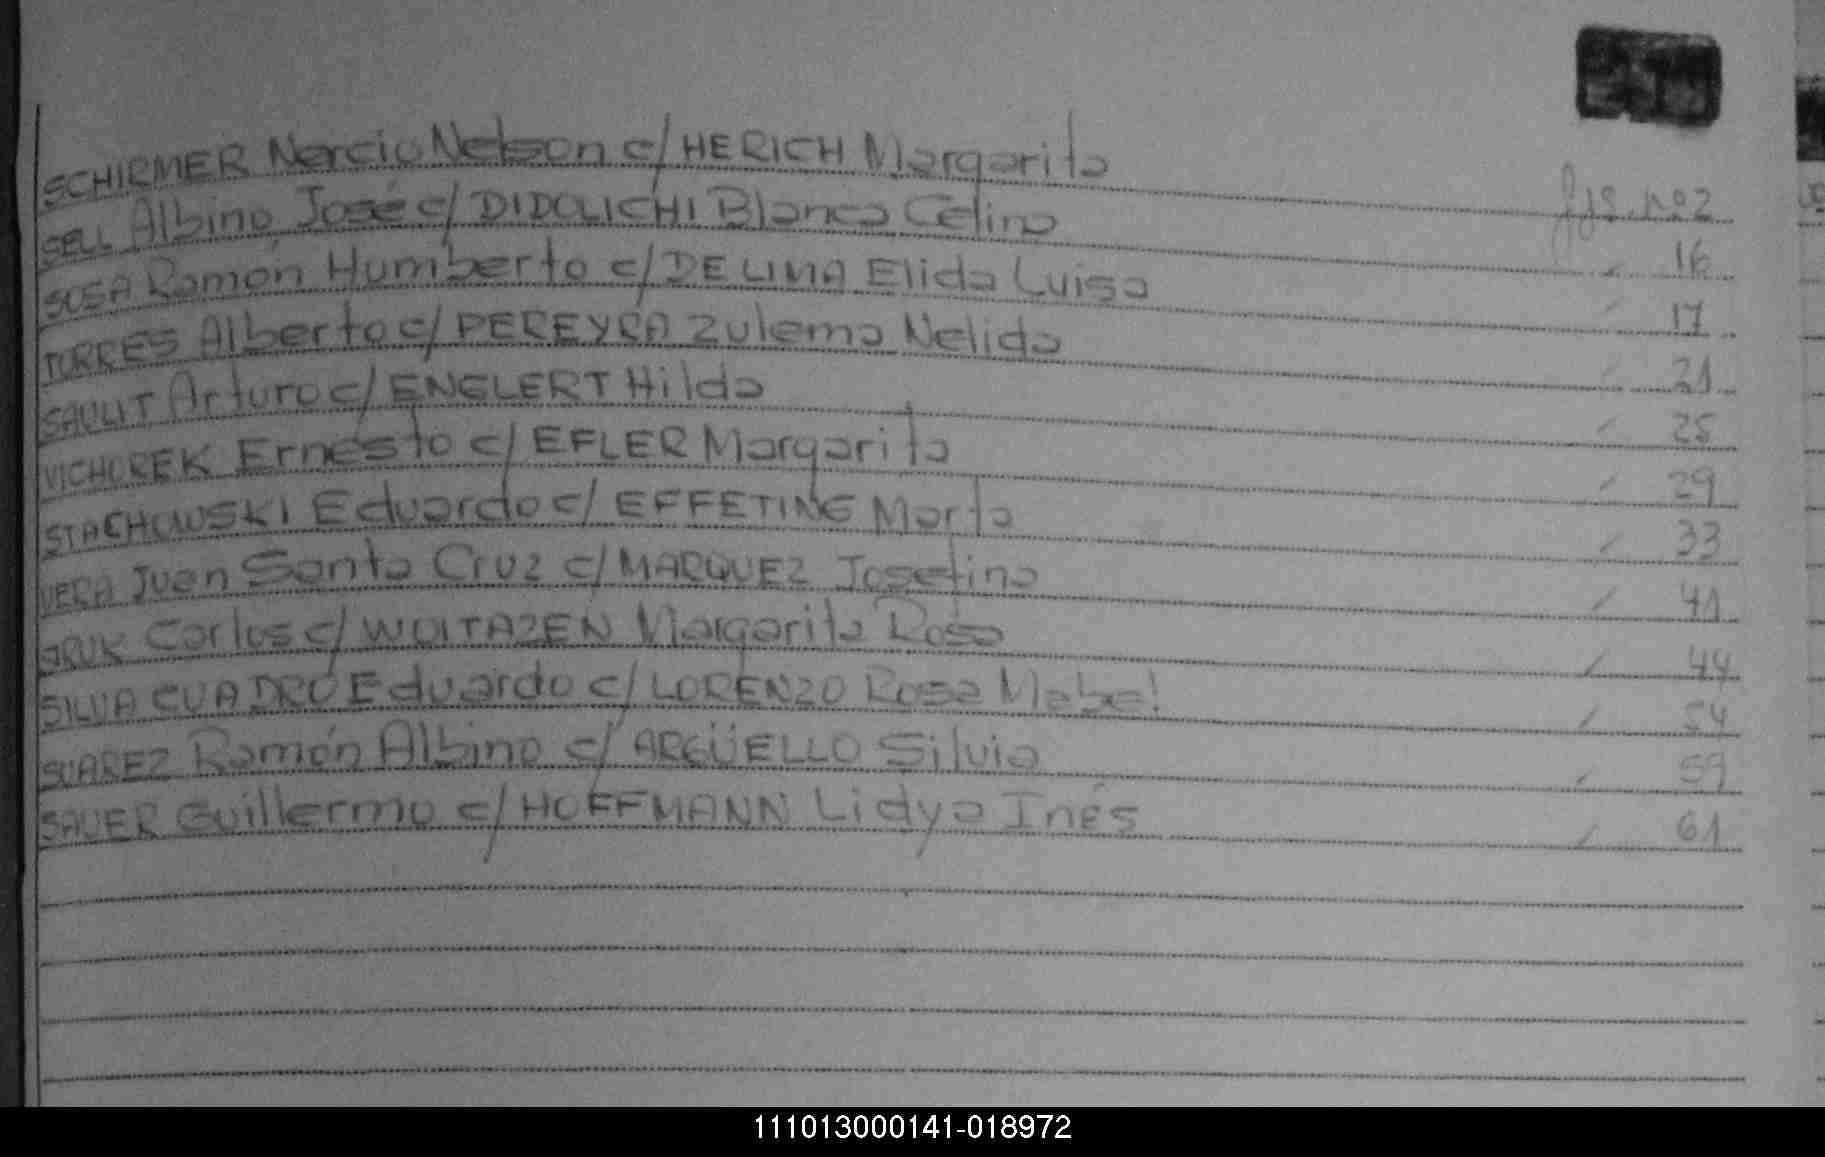 SCHIRMER Nercio Nelson c/ HERICH Margarita fjs. nº 2
SELL Albino José c/ DIDOLICHI Blanca Celina 16
SOSA Ramón Humberto c/ DE LIMA Elida Luisa 17
TORRES Alberto c/ PEREYRA Zulema Nelida 21
SAULIT Arturo c/ ENGLERT Hilda 25
VICHOREK Ernesto c/ EFLER Margarita 29
STACHOWSKI Eduardo c/ EFFETING Marta 33
VERA Juan Santa Cruz c/ MARQUEZ Josefina 41
Carlos c/ WOITAZEN Margarita Rosa 44
SILVA CUADRO Eduardo c/ LORENZO Rosa Mabel 54
SUAREZ Ramón Albino c/ ARGÜELLO Silvia 59
SAUER Guillermo c/ HOFFMANN Lidya Inés 61
111013000141-018972